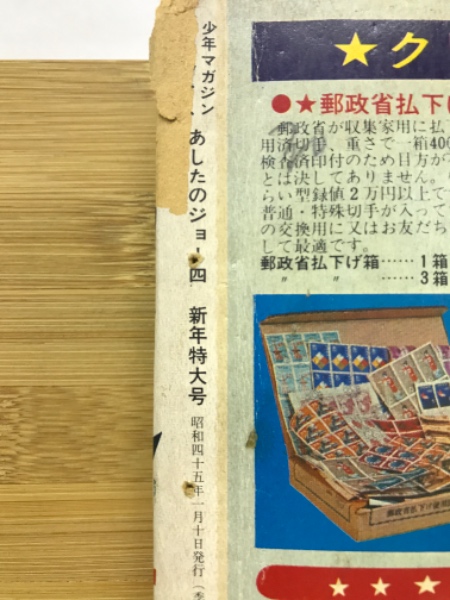 少年マガジン
あしたのジョー四 新年特大号
昭和四十五年一月十日発行
★ク
●★郵政省払下げ
郵政省が収集家用に払
用済切手、重さで一箱400
検査済印付のため目方が
とは決してありません。
らい型録値2万円以上で
普通・特殊切手が入って
の交換用に又はお友だち
して最適です。
郵政省払下げ箱……1箱
〃 〃 ……3箱
★★★